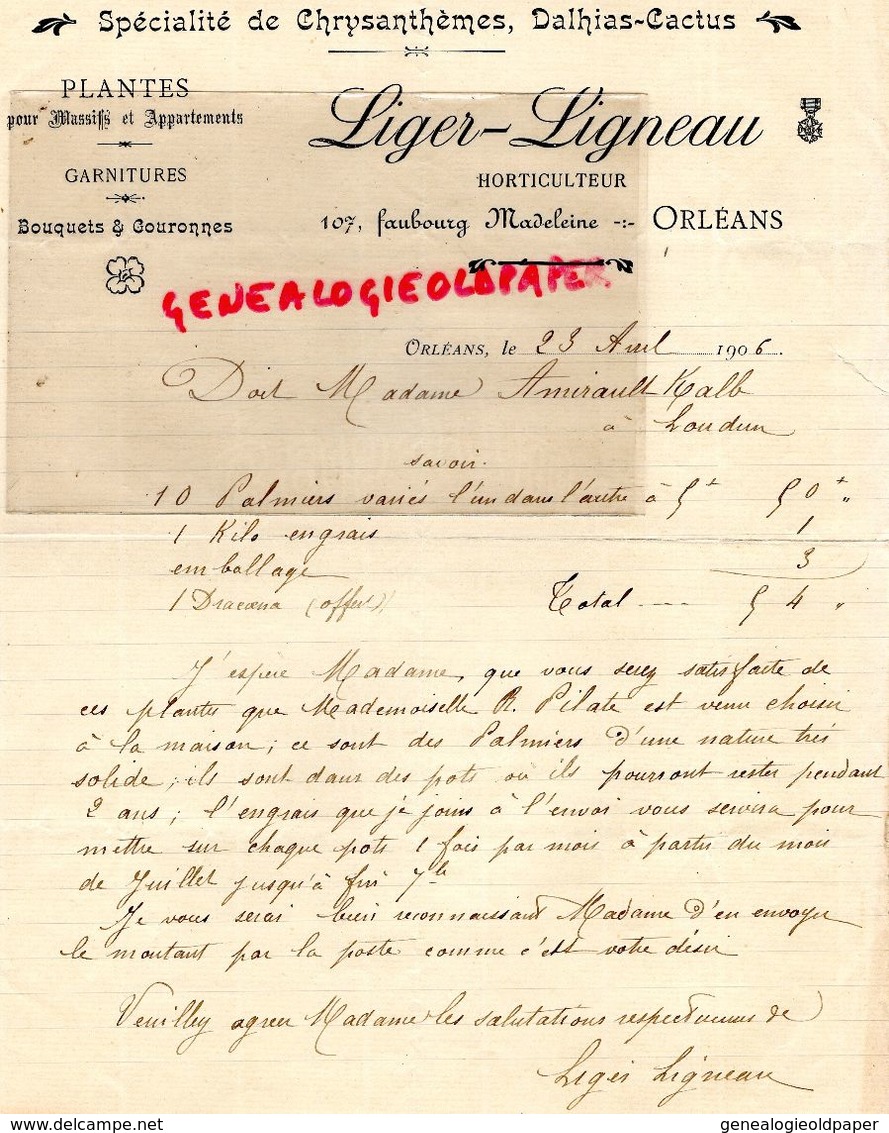 Spécialité de Chrysanthèmes, Dalhias-Cactus
PLANTES
pour Massifs et Appartements
GARNITURES
Bouquets & Couronnes
Liger-Ligneau
HORTICULTEUR
107, faubourg Madeleine -:- ORLÉANS
GENEALOGIEOLDPAPER
ORLÉANS, le 23 Avril 1906.
Doit Madame Amirault Kalb
à Loudun
savoir.
10 Palmiers variés l'un dans l'autre à 5f 50f "
1 Kilo engrais 1
emballage 3
1 Dracæna (offert) Total ---- 54 "
J'espère Madame, que vous serez satisfaite de
ces plantes que Mademoiselle R. Pilate est venu choisir
à la maison; ce sont des Palmiers d'une nature très
solide; ils sont dans des pots où ils pourront rester pendant
2 ans; l'engrais que je joins à l'envoi vous servira pour
mettre sur chaque pots 1 fois par mois à partir du mois
de Juillet jusqu'à fin 7bre
Je vous serai bien reconnaissant Madame d'en envoyer
le montant par la poste comme c'est votre désir
Veuillez agréer Madame les salutations respectueuses de
Liger Ligneau
delcampe.net
genealogieoldpaper